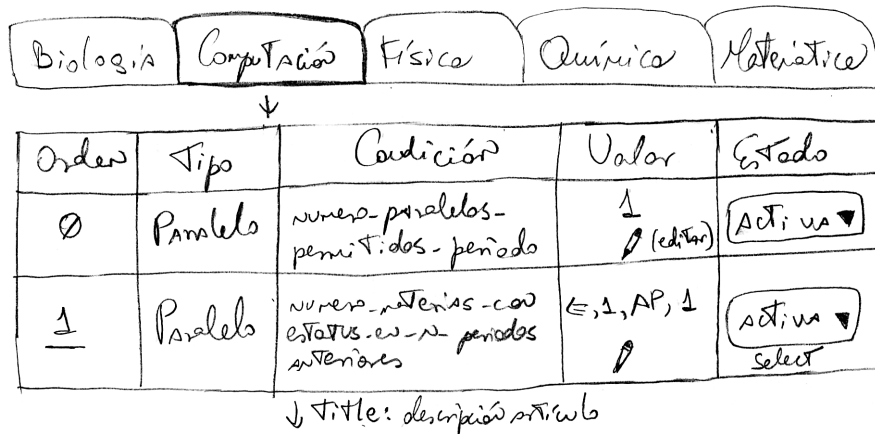 Biología Computación Física Química Matemática
Orden Tipo Condición Valor Estado
0 Paralelo numero-paralelos- 1 Activa
permitidos-periodo (editar)
1 Paralelo numero-materias-con ∈,1,AP,1 activa
estatus-en-N-periodos
anteriores select
↓ Title: descripción artículo